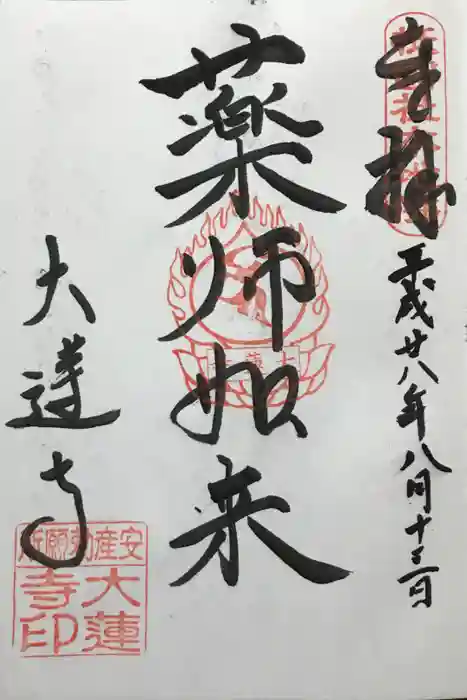 奉拝
平成廿八年八月十三日
薬師如来
大蓮寺
安産勅願所
大蓮寺印